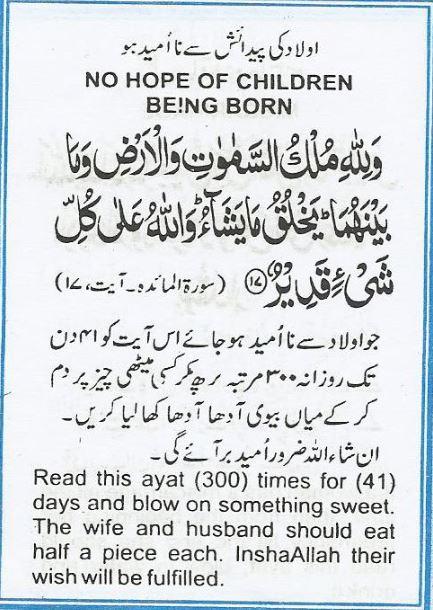 اولاد کی پیدائش سے نا اُمید ہو
NO HOPE OF CHILDREN
BE!NG BORN
وَلِلّٰهِ مُلْكُ السَّمٰوٰتِ وَالْاَرْضِ وَمَا
بَيْنَهُمَا ؕ يَخْلُقُ مَا يَشَآءُ ؕ وَاللّٰهُ عَلٰى كُلِّ
شَىْءٍ قَدِيْرٌ ﴿۱۷﴾ (سورۃ المائدہ۔ آیت، ۱۷)
جو اولاد سے نا اُمید ہو جائے اس آیت کو ۴۱ دن
تک روزانہ ۳۰۰ مرتبہ پڑھ کر کسی میٹھی چیز پر دم
کر کے میاں بیوی آدھا آدھا کھا لیا کریں۔
ان شاء اللہ ضرور اُمید بر آئے گی۔
Read this ayat (300) times for (41)
days and blow on something sweet.
The wife and husband should eat
half a piece each. InshaAllah their
wish will be fulfilled.